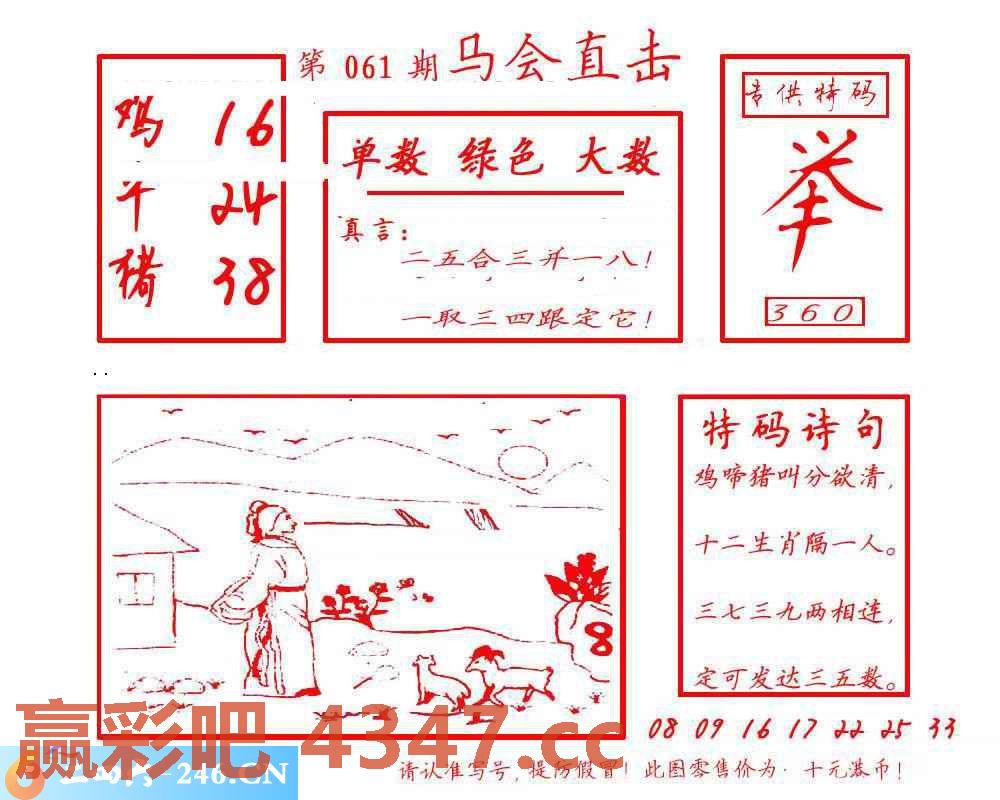 第 061 期 马会直击
鸡 16
24
猪 38
单数 绿色 大数
真言：
二五合三并一八！
一取三四跟定它！
专供特码
举
360
特码诗句
鸡啼猪叫分欲清，
十二生肖隔一人。
三七三九两相连，
定可发达三五数。
8
08 09 16 17 22 25 33
赢彩吧 4347.cc
-246.CN
请认准写号，提防假冒！此图零售价为·十元港币！